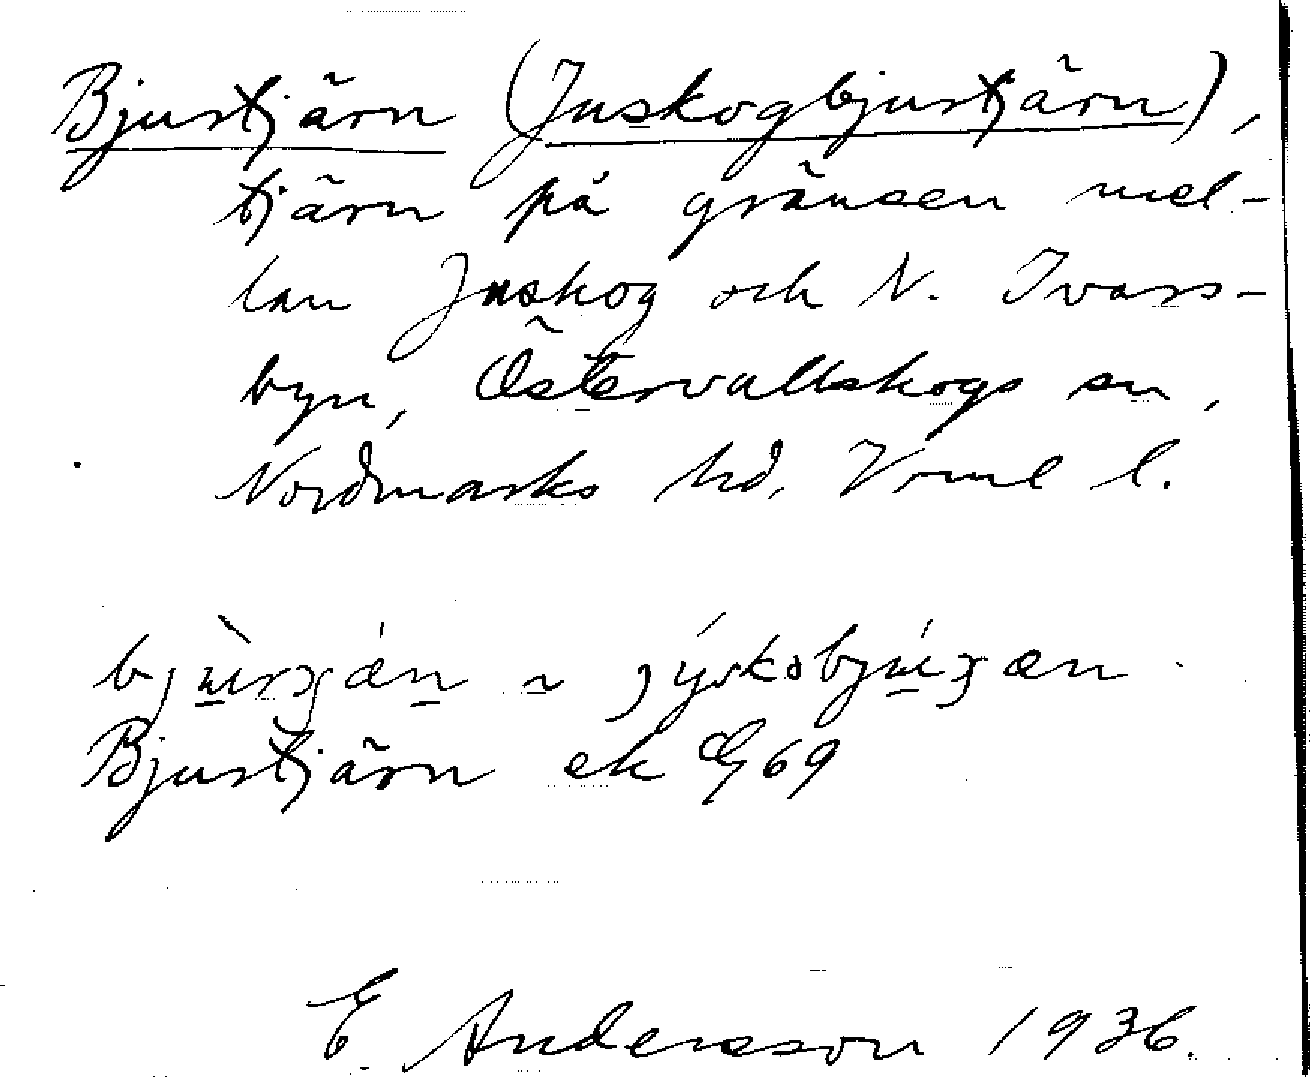 Bjurtjärn (Juskogbjurtjärn),
tjärn på gränsen mel-
lan Juskog och N. Ivars-
byn, Östervallskogs sn,
Nordmarks hd, Vrml l.
Bjurtjärn ek 69
E. Andersson 1936.